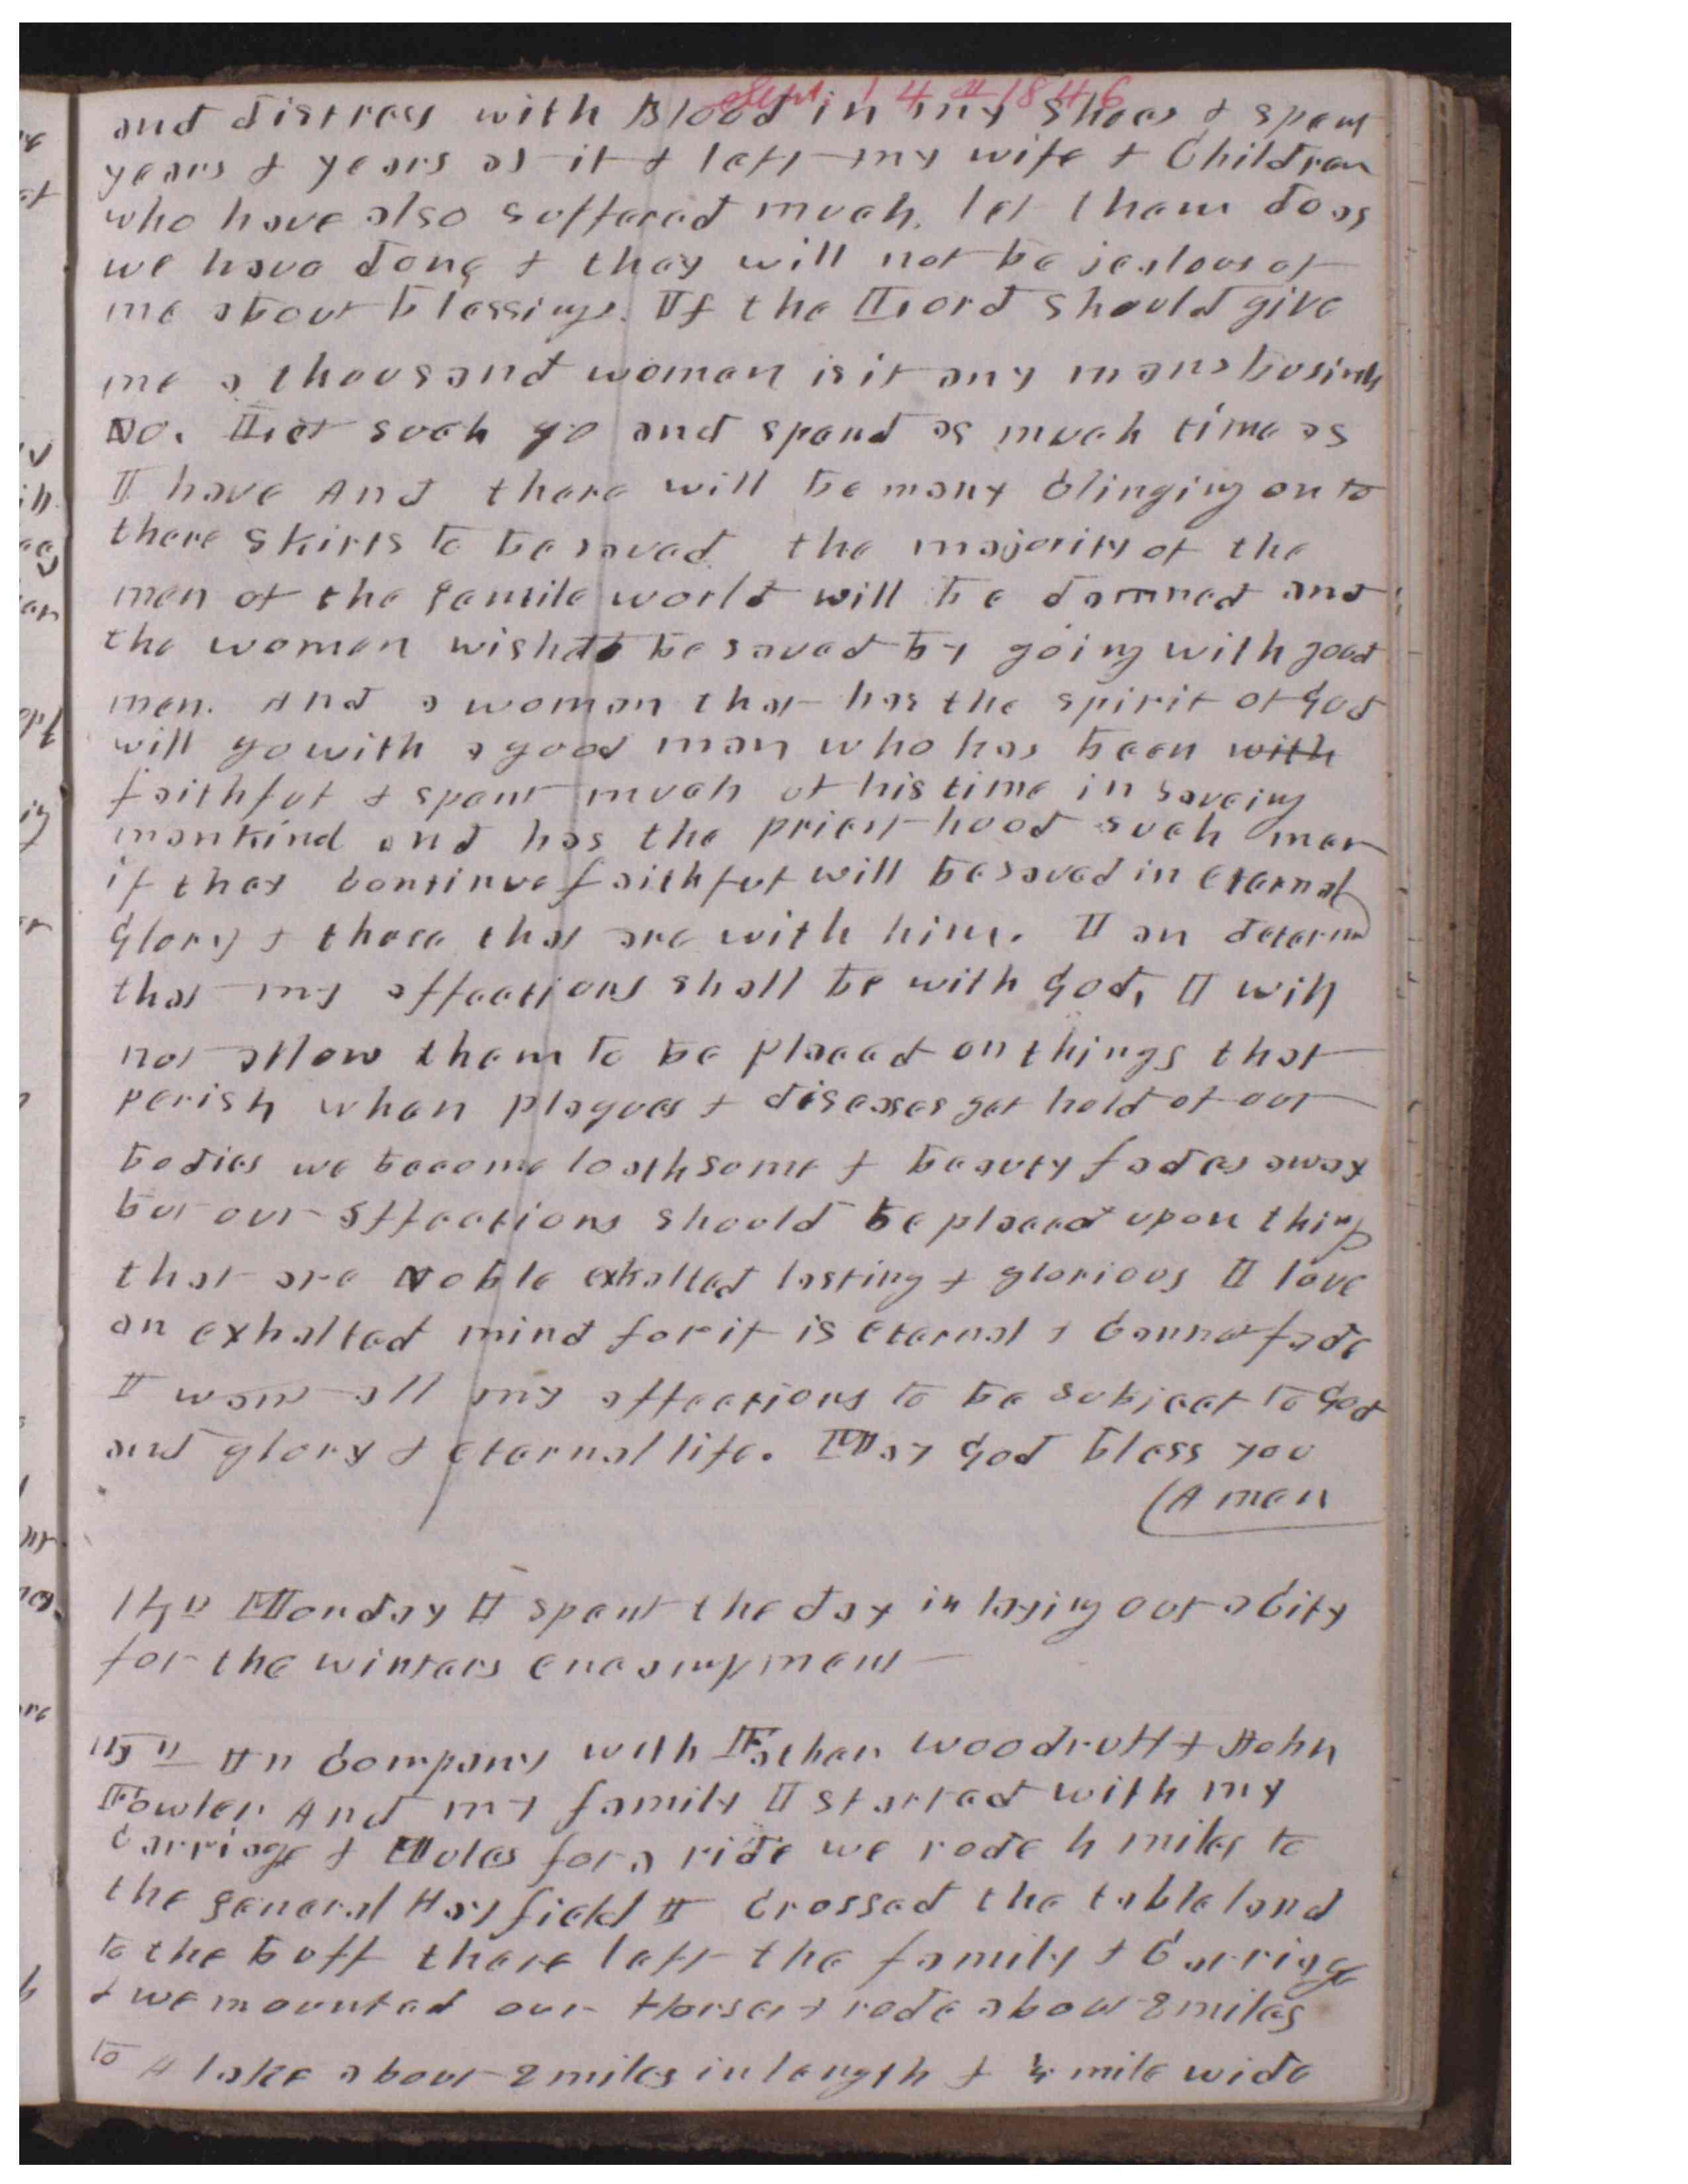 Sept. 14th 1846
and distress with Blood in my Shoes & spent
years & years at it & left my wife & Children
who have also suffered much. let them do as
we have done & they will not be jealous of
me about blessings. If the Lord should give
me a thousand women is it any mans business
No. Let such go and spend as much time as
I have And there will be many Clinging on to
there skirts to be saved the majority of the
men of the gentile world will be damned and
the women wish to be saved by going with good
men. And a woman that has the spirit of God
will go with a good man who has been with
faithful & spent much of his time in saveing
mankind and has the priesthood such men
if they Continue faithful will be saved in eternal
Glory & those that are with him. I am determ
that my affections shall be with God, I will
not allow them to be placed on things that
perish when plagues & diseases get hold of our
bodies we become loathsome & beauty fades away
but our affections should be placed upon things
that are Noble exhalted lasting & glorious I love
an exhalted mind for it is eternal & Cannot fade
I want all my affections to be subject to God
and glory & eternal life. May God bless you
(Amen
14th Monday I spent the day in laying out a City
for the winters encampment
15th In Company with Father Woodruff & John
Fowler And my family I started with my
Carriage & Mules for a ride we rode 4 miles to
the general Hay field I Crossed the table land
to the buff there left the family & Carriage
& we mounted our Horses & rode about 8 miles
to A lake about 2 miles in length & ¼ mile wide